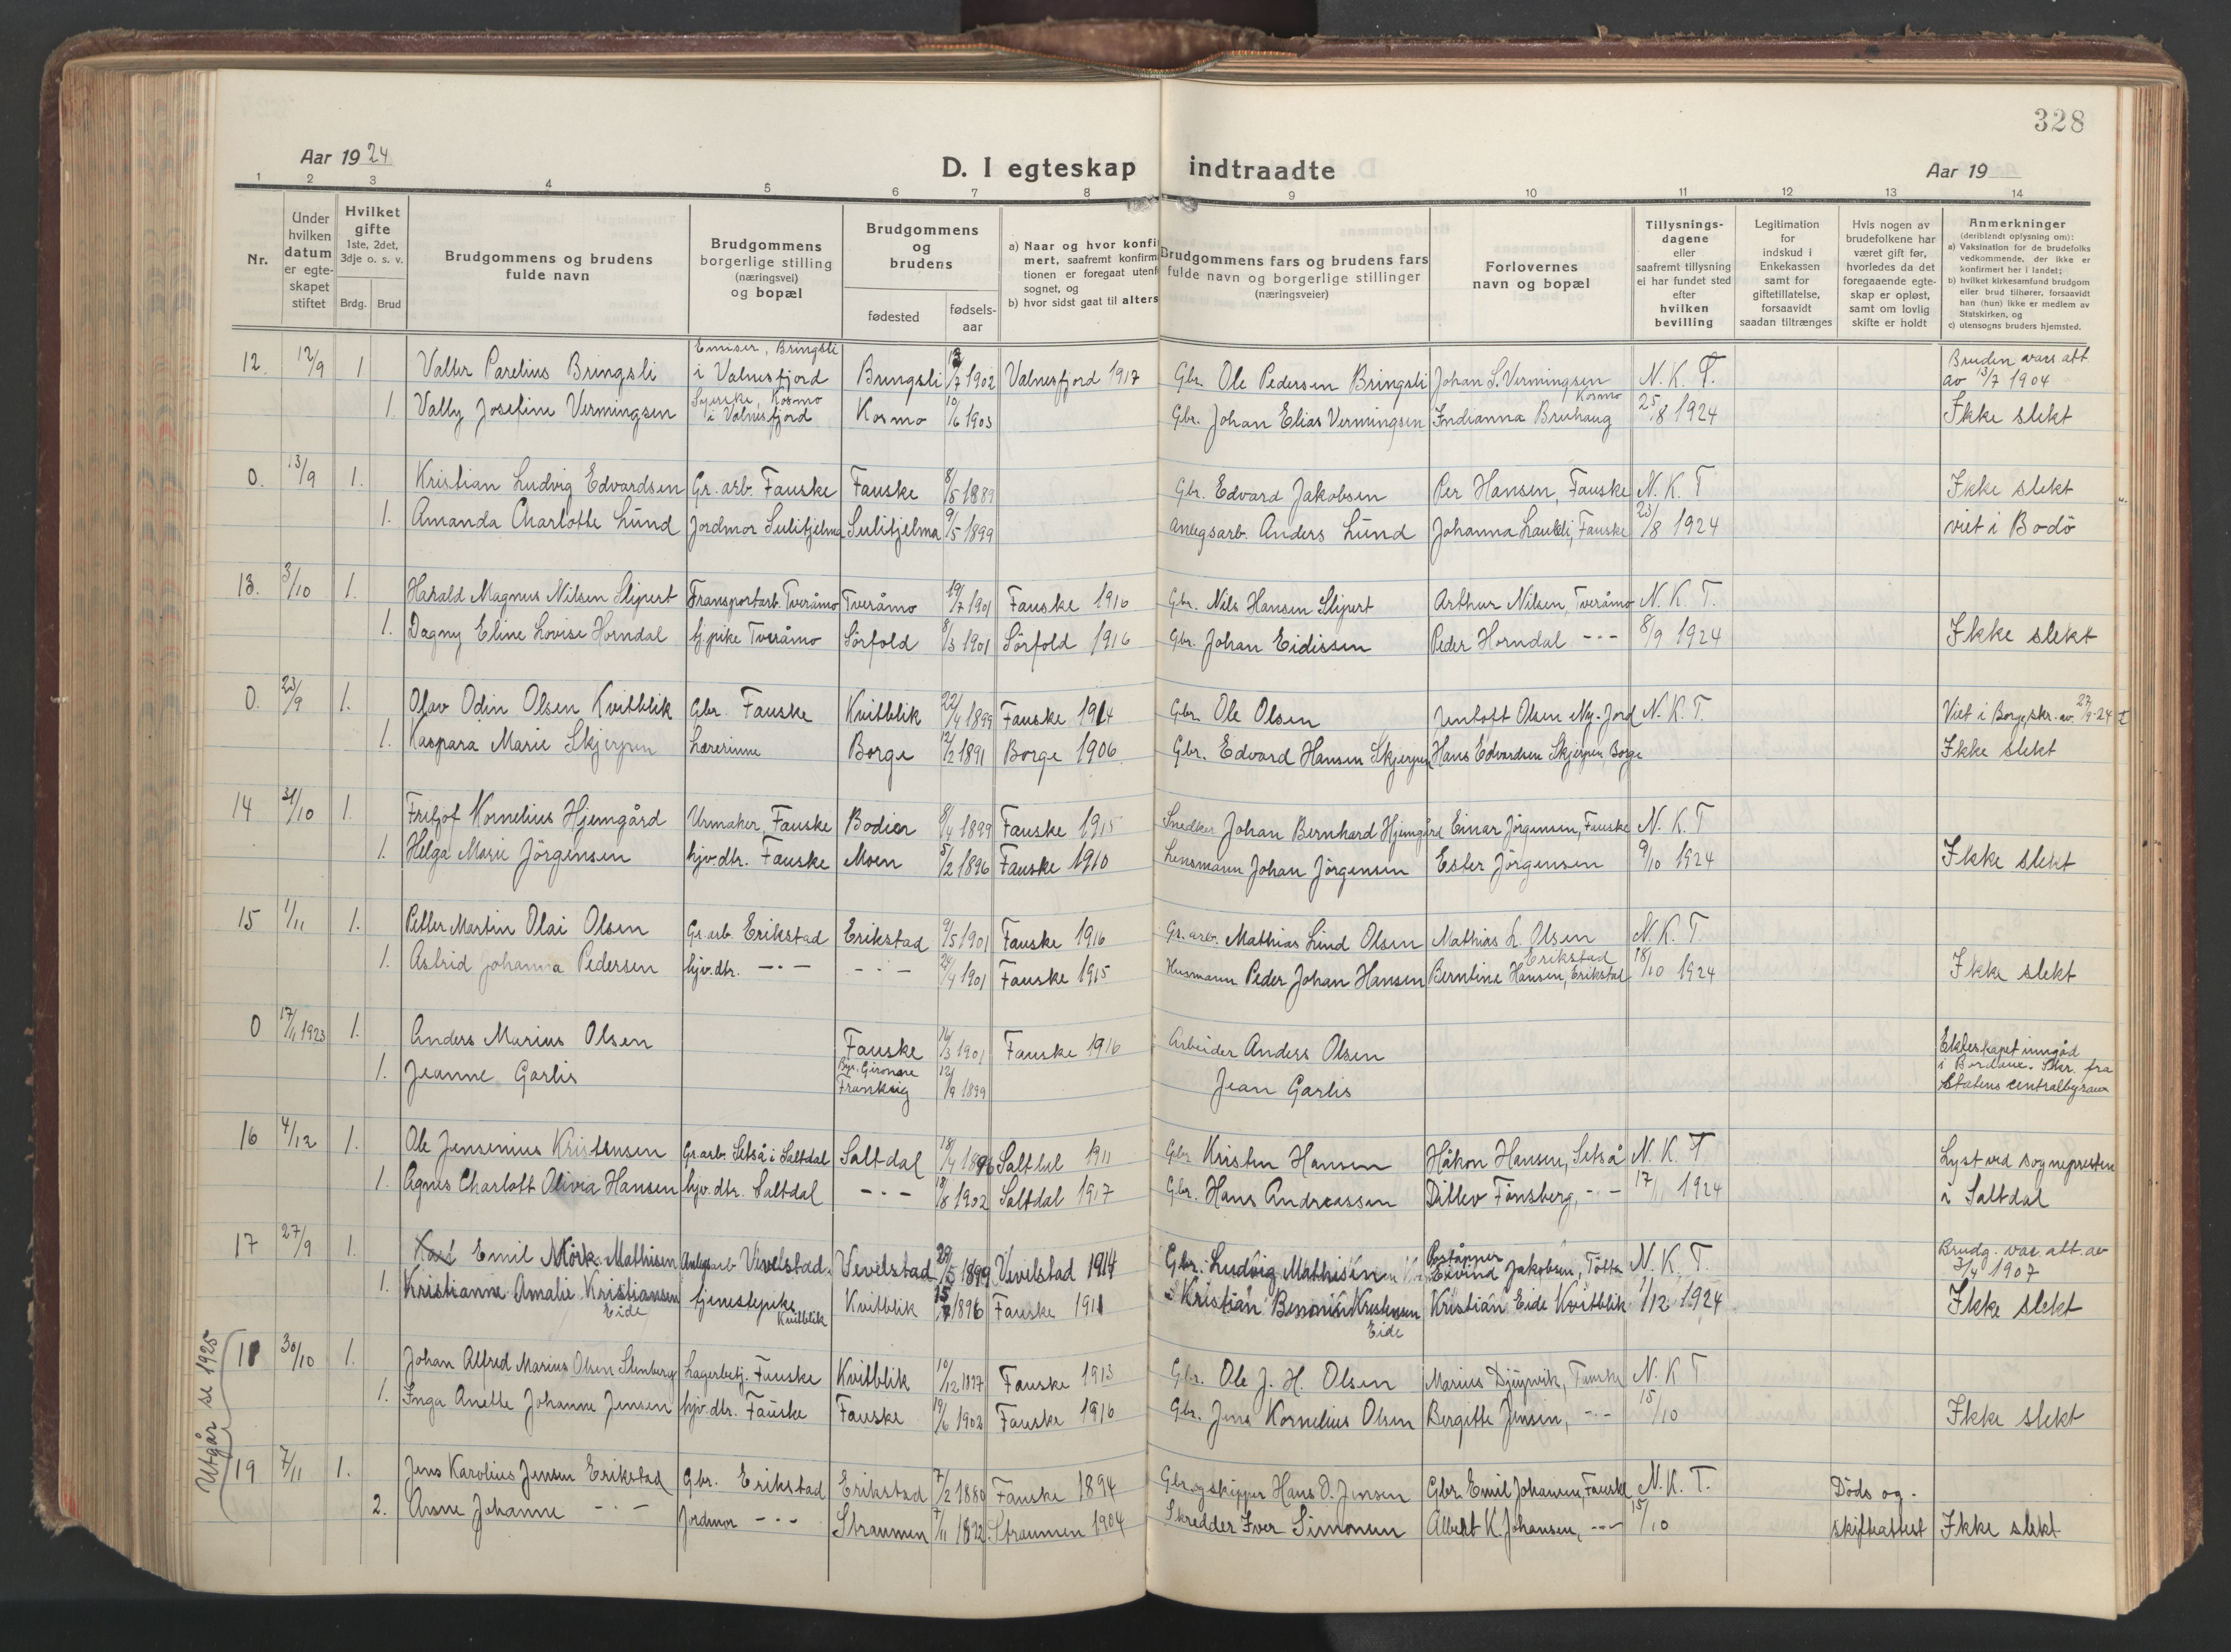 328
Aar 1924
D. I egteskap indtraadte
Aar 19
1 2 3 4 5 6 7 8 9 10 11 12 13 14
Nr.
Under hvilken datum er egte-skapet stiftet
Hvilket gifte 1ste, 2det, 3dje o. s. v.
Brdg. Brud
Brudgommens og brudens fulde navn
Brudgommens borgerlige stilling (næringsvei) og bopæl
Brudgommens og brudens
fødested
fødsels-aar
a) Naar og hvor konfi mert, saafremt konfirm tionen er foregaat utenf sognet, og
b) hvor sidst gaat til alters
Brudgommens fars og brudens fars fulde navn og borgerlige stillinger (næringsveier)
Forlovernes navn og bopæl
Tillysnings-dagene eller saafremt tillysning ei har fundet sted efter hvilken bevilling
Legitimation for indskud i Enkekassen samt for giftetillatelse, forsaavidt saadan tiltrænges
Hvis nogen av brudefolkene har været gift før, hvorledes da det foregaaende egte-skap er opløst, samt om lovlig skifte er holdt
Anmerkninger (deriblandt oplysning om):
a) Vaksination for de brudefolks vedkommende, der ikke er konfirmert her i landet;
b) hvilket kirkesamfund brudgom eller brud tilhører, forsaavidt han (hun) ikke er medlem av Statskirken, og
c) utensogns bruders hjemsted.
12. 12/9 1 Valter Parelius Bringsli Bringsli i Valnesfjord Bringsli /7 1902 Valnesfjord 1917 Gbr. Ole Pedersen Bringsli Johan S. Vermingsen Kosmo N. K. T. Bruden vacs. att. av 13/7 1904
1. Valby Josefine Vermingsen Kosmo i Valnesfjord Kosmo 10/6 1903 Gbr. Johan Elias Vermingsen Indianna Bruhaug 25/8 1924 Ikke slekt
0. 13/9 1. Kristian Ludvig Edvardsen Gr. arb. Fauske Fauske 8/5 1889 Gbr. Edvard Jakobsen Per Hansen, Fauske N. K. T Ikke slekt
1. Amanda Charlotte Lund Jordmor Sulitjelma Sulitjelma 9/5 1899 Anlegsarb. Anders Lund Johanna Laukli, Fauske 23/8 1924 viet i Bodö
13. 3/10 1. Harald Magnus Nilsen Slipert Transportarb. Tveråmo Tveråmo 19/7 1901 Fauske 1916 Gbr. Nils Hansen Slipert Arthur Nilsen, Tveråmo N. K. T.
1. Dagny Eline Lovise Horndal tj.pike Tveråmo Sörfold 8/3 1901 Sörfold 1916 Gbr. Johan Eidissen Peder Horndal -"- 8/9 1924 Ikke slekt
0. 23/9 1. Olav Odin Olsen Kvitblik Gbr. Fauske Kvitblik 22/4 1899 Fauske 1914 Gbr. Ole Olsen Jentoft Olsen Ny-Jord N. K. T. Viet i Borge, skr. av 23/9-24
1. Kaspara Marie Skjerpen Lærerinne Borge /2 1891 Borge 1906 Gbr. Edvard Hansen Skjerpen Hans Edvardsen Skjerpen, Borge Ikke slekt
14 31/10 1. Fritjof Kornelius Hjemgård Urmaker, Fauske Bodin /4 1899 Fauske 1915 Snedker Johan Bernhard Hjemgård Einar Jörgensen, Fauske N. K. T
1. Helga Marie Jörgensen hjv. dtr. Fauske Moen 5/2 1896 Fauske 1910 Lensmann Johan Jörgensen Ester Jörgensen 9/10 1924 Ikke slekt
15 1/11 1. Petter Martin Olai Olsen Gr. arb. Erikstad Erikstad 9/5 1901 Fauske 1916 Gr. arb. Mathias Lind Olsen Mathias L. Olsen Erikstad N. K. T.
1. Astrid Johanna Pedersen hjv. dtr. -"- -"- 24/4 1901 Fauske 1915 Husmann Peder Johan Hansen Berntine Hansen, Erikstad 18/10 1924 Ikke slekt
0 17/11 1923 1. Anders Marius Olsen Fauske 16/3 1901 Fauske 1916 Arbeider Anders Olsen Ekteskapet inngåd i Bordaux. Skr. fra Statens centralbyraa
1. Jeanne Garlis Gironne Frankrig 12/9 1899 Jean Garlis
16 4/12 1. Ole Jensenius Kristensen Gr. arb. Setså i Saltdal Saltdal 18/4 1896 Saltdal 1911 Gbr. Kristen Hansen Håkon Hansen, Setså N. K. T Lyst ved sognepresten
1. Agnes Charlott Olivia Hansen hjv. dtr. Saltdal -"- 18/8 1902 Saltdal 1917 Gbr. Hans Andreassen Ditlev Tönsberg, -"- 17/ 1924 i Saltdal
17 27/9 1. Karl Emil Mörk Mathisen Anlegsarb Vevelstad. Vevelstad 28/5 1899 Vevelstad 1914 Gbr. Ludvig Mathisen Eivind Jakobsen, N. K. T. Brudg. vac. att. av 7/4 1907
1. Kristianne Amalie Kristiansen Eide tjenestepike Kvitblik Kvitblik 15/ 1896 Fauske 1911 Kristian Benonin Kristensen Eide Kristian Eide Kvitblik 1/12 1924 Ikke slekt
Utgår se 1925
18 30/10 1. Johan Alfred Marius Olsen Stenberg Lagerbetj. Fauske Kvitblik 10/12 1897 Fauske 1913 Gbr. Ole J. H. Olsen Marius Djupvik, Fauske N. K. T
1. Inga Anette Johanne Jensen hjv. dtr. Fauske Fauske 19/6 1902 Fauske 1916 Gbr. Jens Kornelius Olsen Bergitte Jensen, -"- 15/10 Ikke slekt
19 7/11 1. Jens Karolius Jensen Erikstad Gbr. Erikstad Erikstad 7/2 1880 Fauske 1894 Gbr. og skipper Hans D. Jensen Gbr. Emil Johansen, Fauske N. K. T. Döds og
2. Anne Johanne -"- Jordmor -"- Straumen 7/11 1892 Straumen 1904 Skredder Iver Simonsen Albert K. Johansen, -"- 15/10 skifteattest Ikke slekt